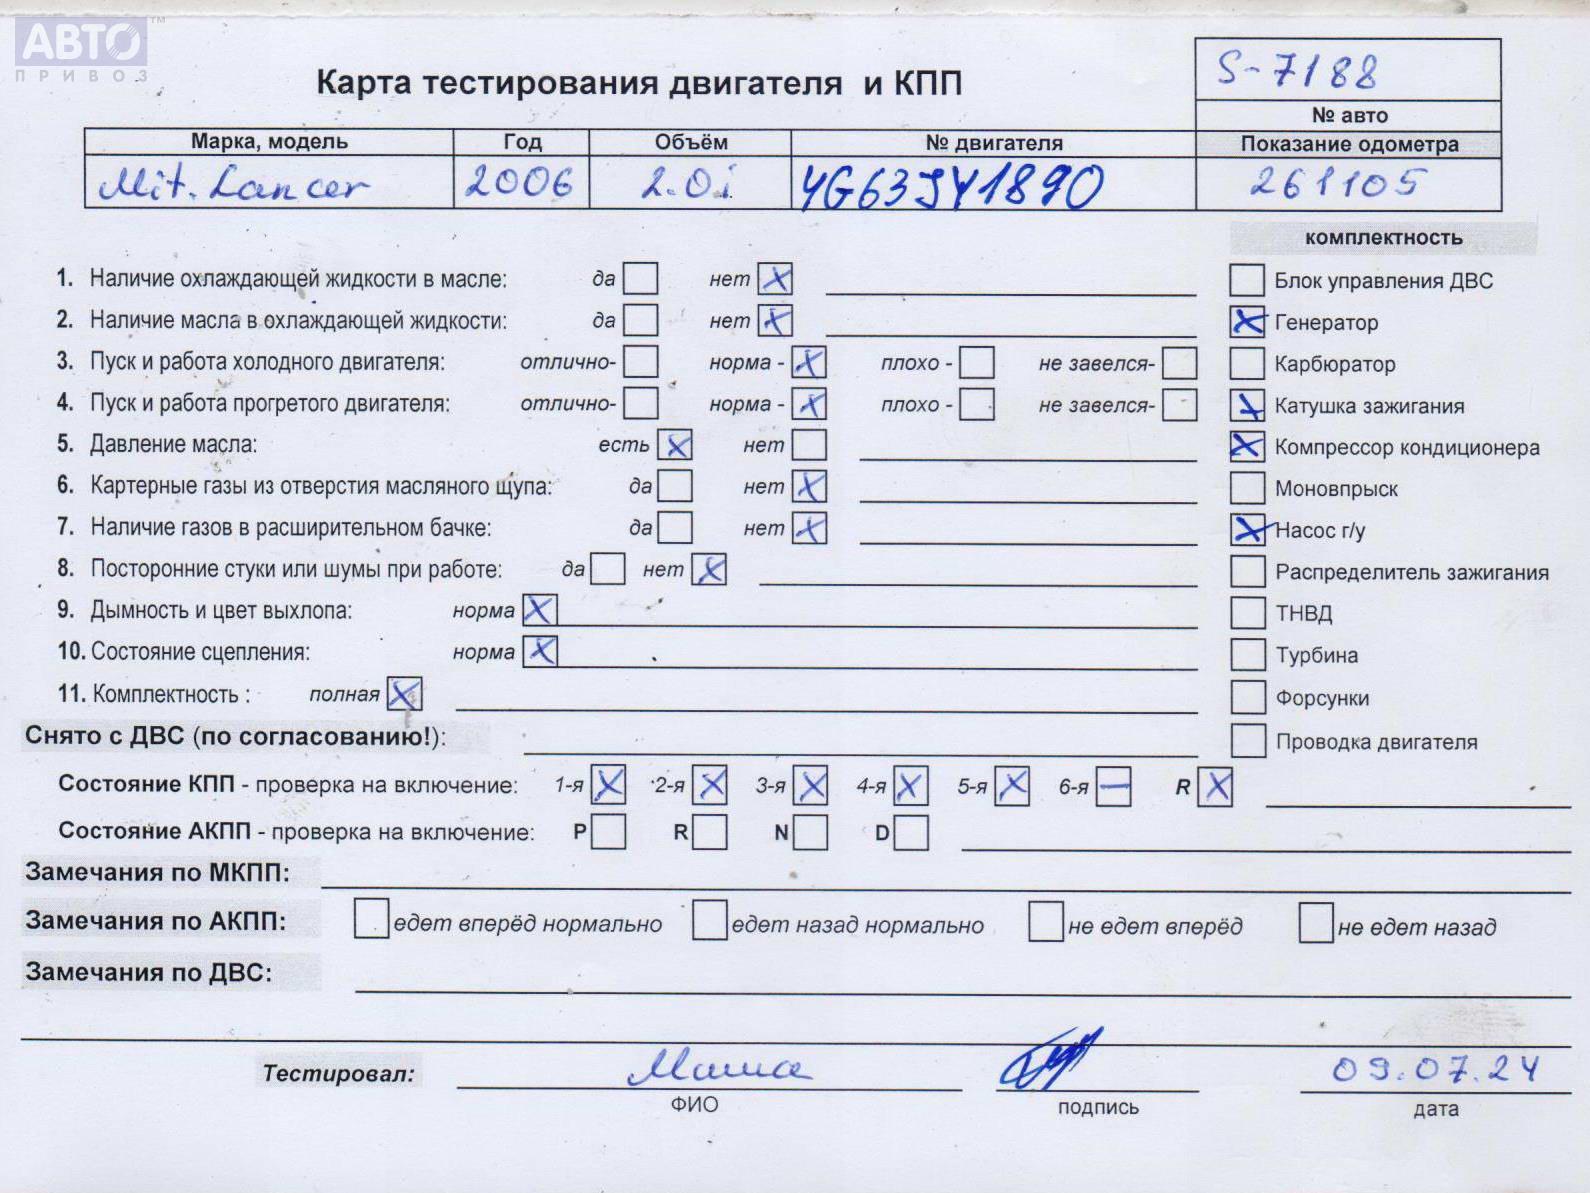 АВТО™
ПРИВОЗ
Карта тестирования двигателя и КПП
S-7188
№ авто
Марка, модель Год Объём № двигателя Показание одометра
Mit. Lancer 2006 2.0i 4G63JY1890 261105
комплектность
1. Наличие охлаждающей жидкости в масле: да нет x Блок управления ДВС
2. Наличие масла в охлаждающей жидкости: да нет x x Генератор
3. Пуск и работа холодного двигателя: отлично- норма - x плохо - не завелся- Карбюратор
4. Пуск и работа прогретого двигателя: отлично- норма - x плохо - не завелся- x Катушка зажигания
5. Давление масла: есть x нет x Компрессор кондиционера
6. Картерные газы из отверстия масляного щупа: да нет x Моновпрыск
7. Наличие газов в расширительном бачке: да нет x x Насос г/у
8. Посторонние стуки или шумы при работе: да нет x Распределитель зажигания
9. Дымность и цвет выхлопа: норма x ТНВД
10. Состояние сцепления: норма x Турбина
11. Комплектность : полная x Форсунки
Снято с ДВС (по согласованию!): Проводка двигателя
Состояние КПП - проверка на включение: 1-я x 2-я x 3-я x 4-я x 5-я x 6-я — R x
Состояние АКПП - проверка на включение: P R N D
Замечания по МКПП:
Замечания по АКПП: едет вперёд нормально едет назад нормально не едет вперёд не едет назад
Замечания по ДВС:
Тестировал: Маша 09.07.24
ФИО подпись дата